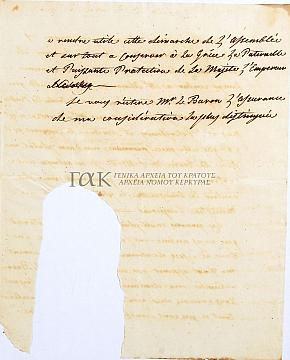 a rendre utile cette demarche de l'Assemblée
et sur tout a conserver à la Grèce la Paternelle
et Puissante Protection de Sa Majesté l'Empereur
Je vous réitère Mr. le Baron l'assurance
de ma considération la plus distinguée
ΓΑΚ ΓΕΝΙΚΑ ΑΡΧΕΙΑ ΤΟΥ ΚΡΑΤΟΥΣ
ΑΡΧΕΙΑ ΝΟΜΟΥ ΚΕΡΚΥΡΑΣ